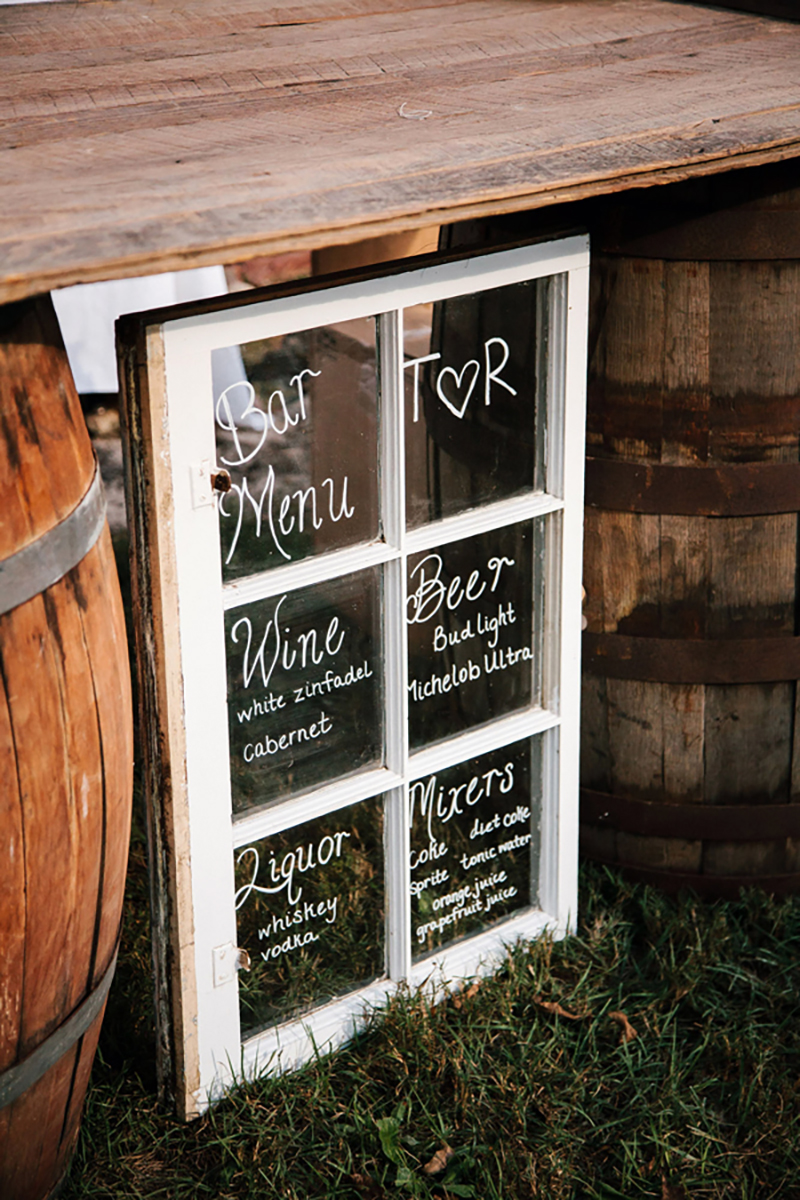 Bar
Menu
T♡R
Wine
white zinfadel
cabernet
Beer
Bud light
Michelob Ultra
Liquor
whiskey
vodka
Mixers
coke diet coke
sprite tonic water
orange juice
grapefruit juice